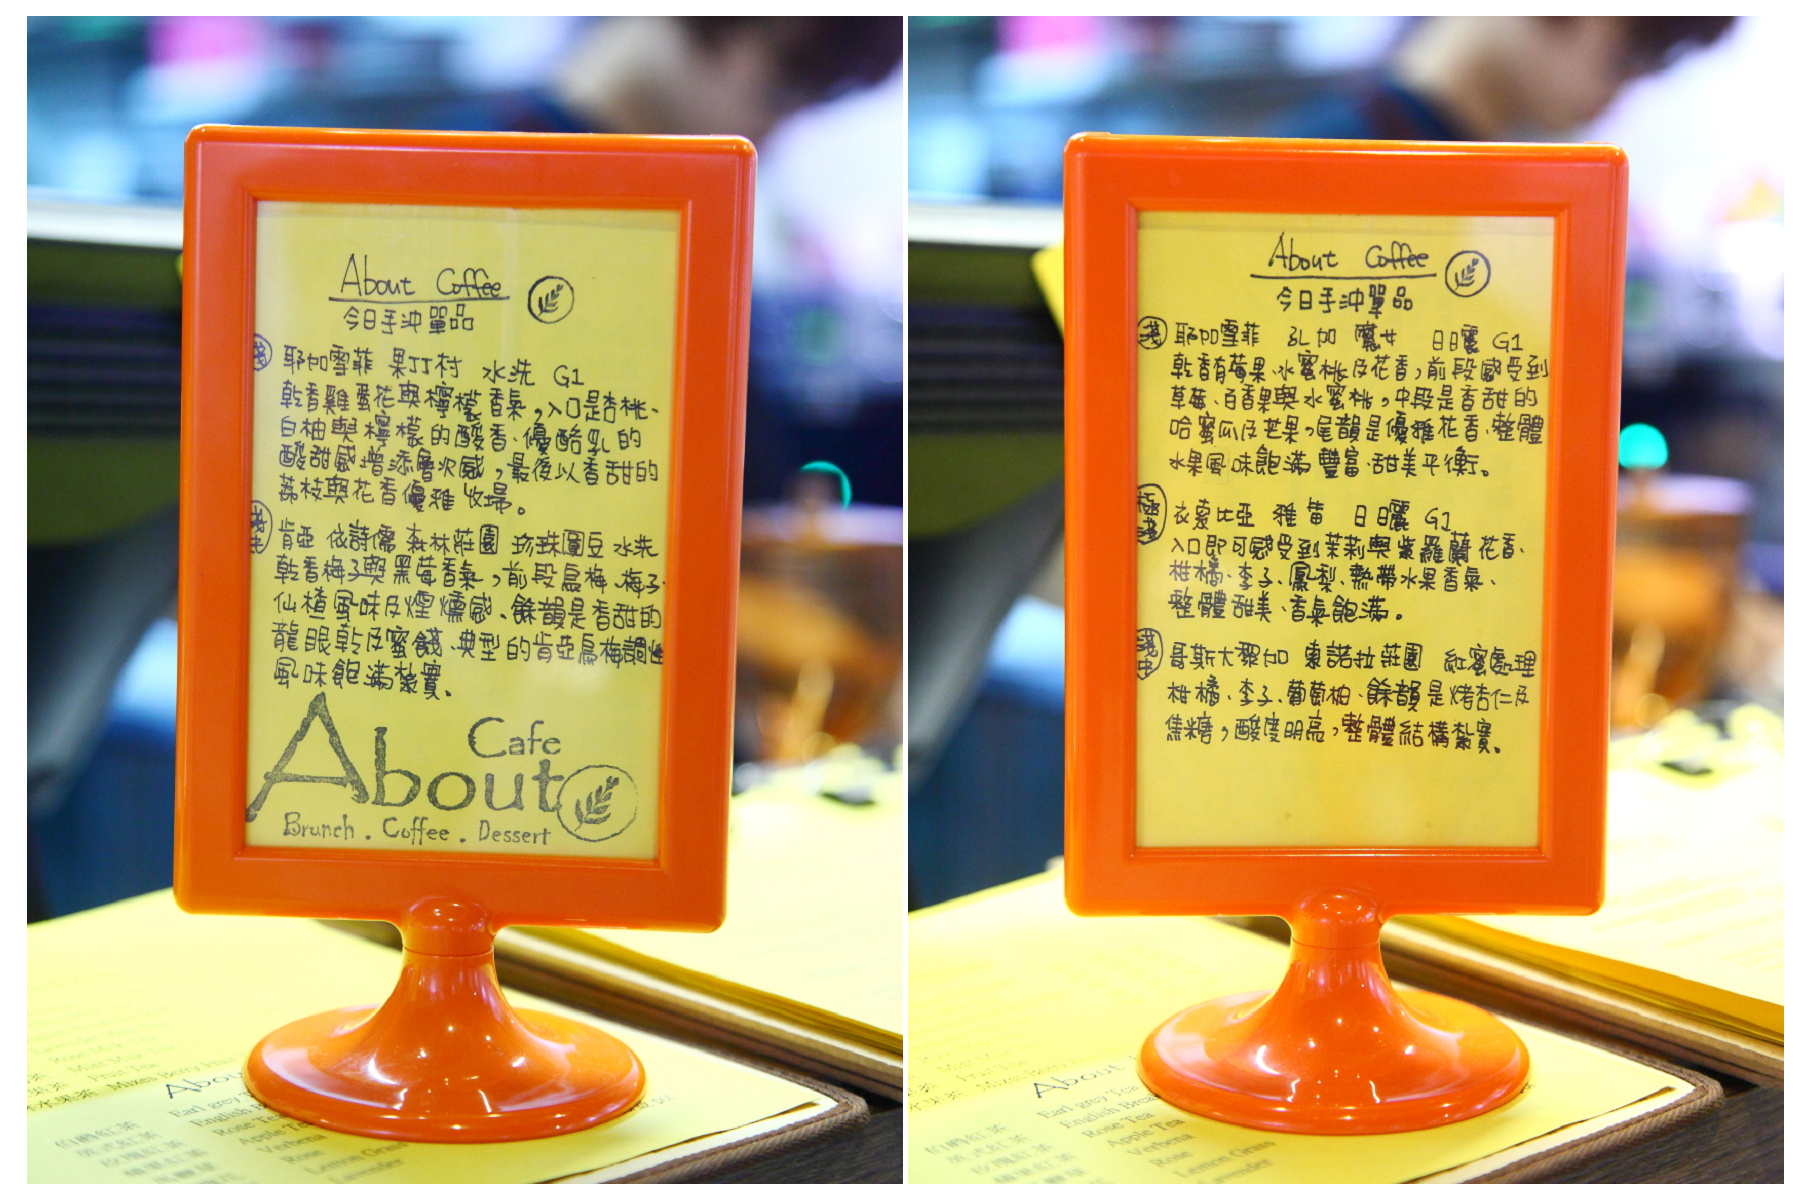 About Coffee
今日手沖單品
淺 耶加雪菲 果丁丁村 水洗 G1
乾香雞蛋花與檸檬香氣,入口是杏桃、
白柚與檸檬的酸香、優酪乳的
酸甜感增添層次感,最後以香甜的
荔枝與花香優雅收場。
淺中 肯亞 依詩儒 森林莊園 珍珠圓豆 水洗
乾香梅子與黑莓香氣,前段烏梅、梅子、
仙楂風味及煙燻感、餘韻是香甜的
龍眼乾及蜜餞、典型的肯亞烏梅調性
風味飽滿紮實。
Cafe
About
Brunch . Coffee . Dessert
About Coffee
今日手沖單品
淺 耶加雪菲 孔加 魔女 日曬 G1
乾香有莓果、水蜜桃及花香,前段感受到
草莓、百香果與水蜜桃,中段是香甜的
哈蜜瓜及芒果,尾韻是優雅花香、整體
水果風味飽滿豐富、甜美平衡。
極淺 衣索比亞 雅苗 日曬 G1
入口即可感受到茉莉與紫羅蘭花香、
柑橘、李子、鳳梨、熱帶水果香氣、
整體甜美、香氣飽滿。
淺中 哥斯大黎加 東諾拉莊園 紅蜜處理
柑橘、李子、葡萄柚、餘韻是烤杏仁及
焦糖,酸度明亮,整體結構紮實。
About
Earl grey Tea
English Brea
Rose Tea
Apple Tea
Verbena
Rose
Lemon Grass
Lavender
伯爵紅茶
英式紅茶
玫瑰紅茶
蘋果紅茶